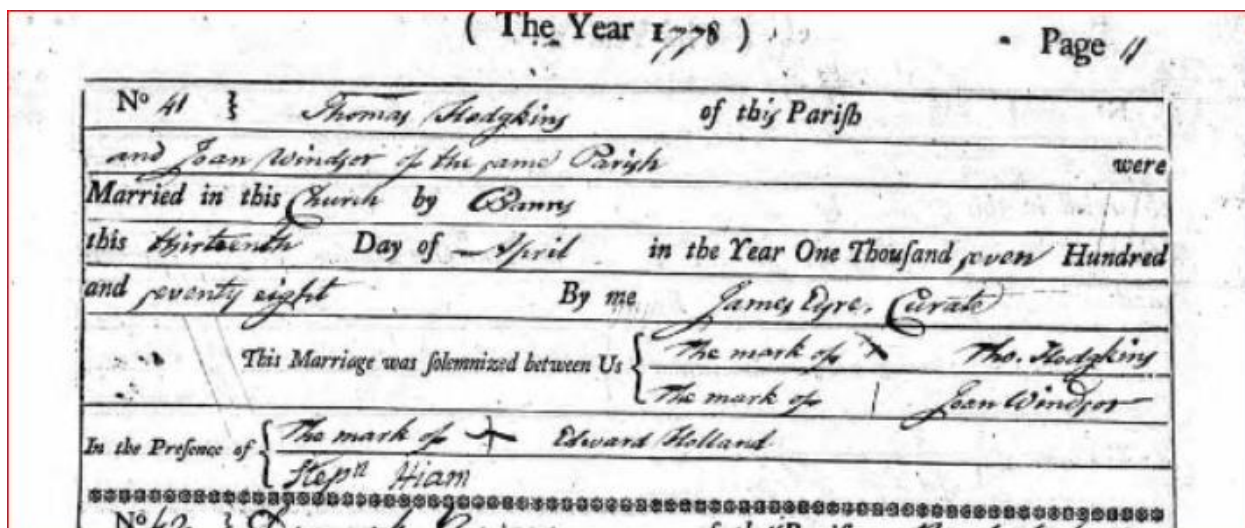 ( The Year 1778 )
Page 11
No 41 } Thomas Hodgkins of this Pariſh
and Joan Windsor of the same Parish were
Married in this Church by Banns
this thirteenth Day of April in the Year One Thouſand seven Hundred
and seventy eight By me James Eyre, Curate
This Marriage was ſolemnized between Us { The mark of X Tho. Hodgkins
The mark of | Joan Windsor
In the Preſence of { The mark of + Edward Holland
Stepn Hiam
No 42 }